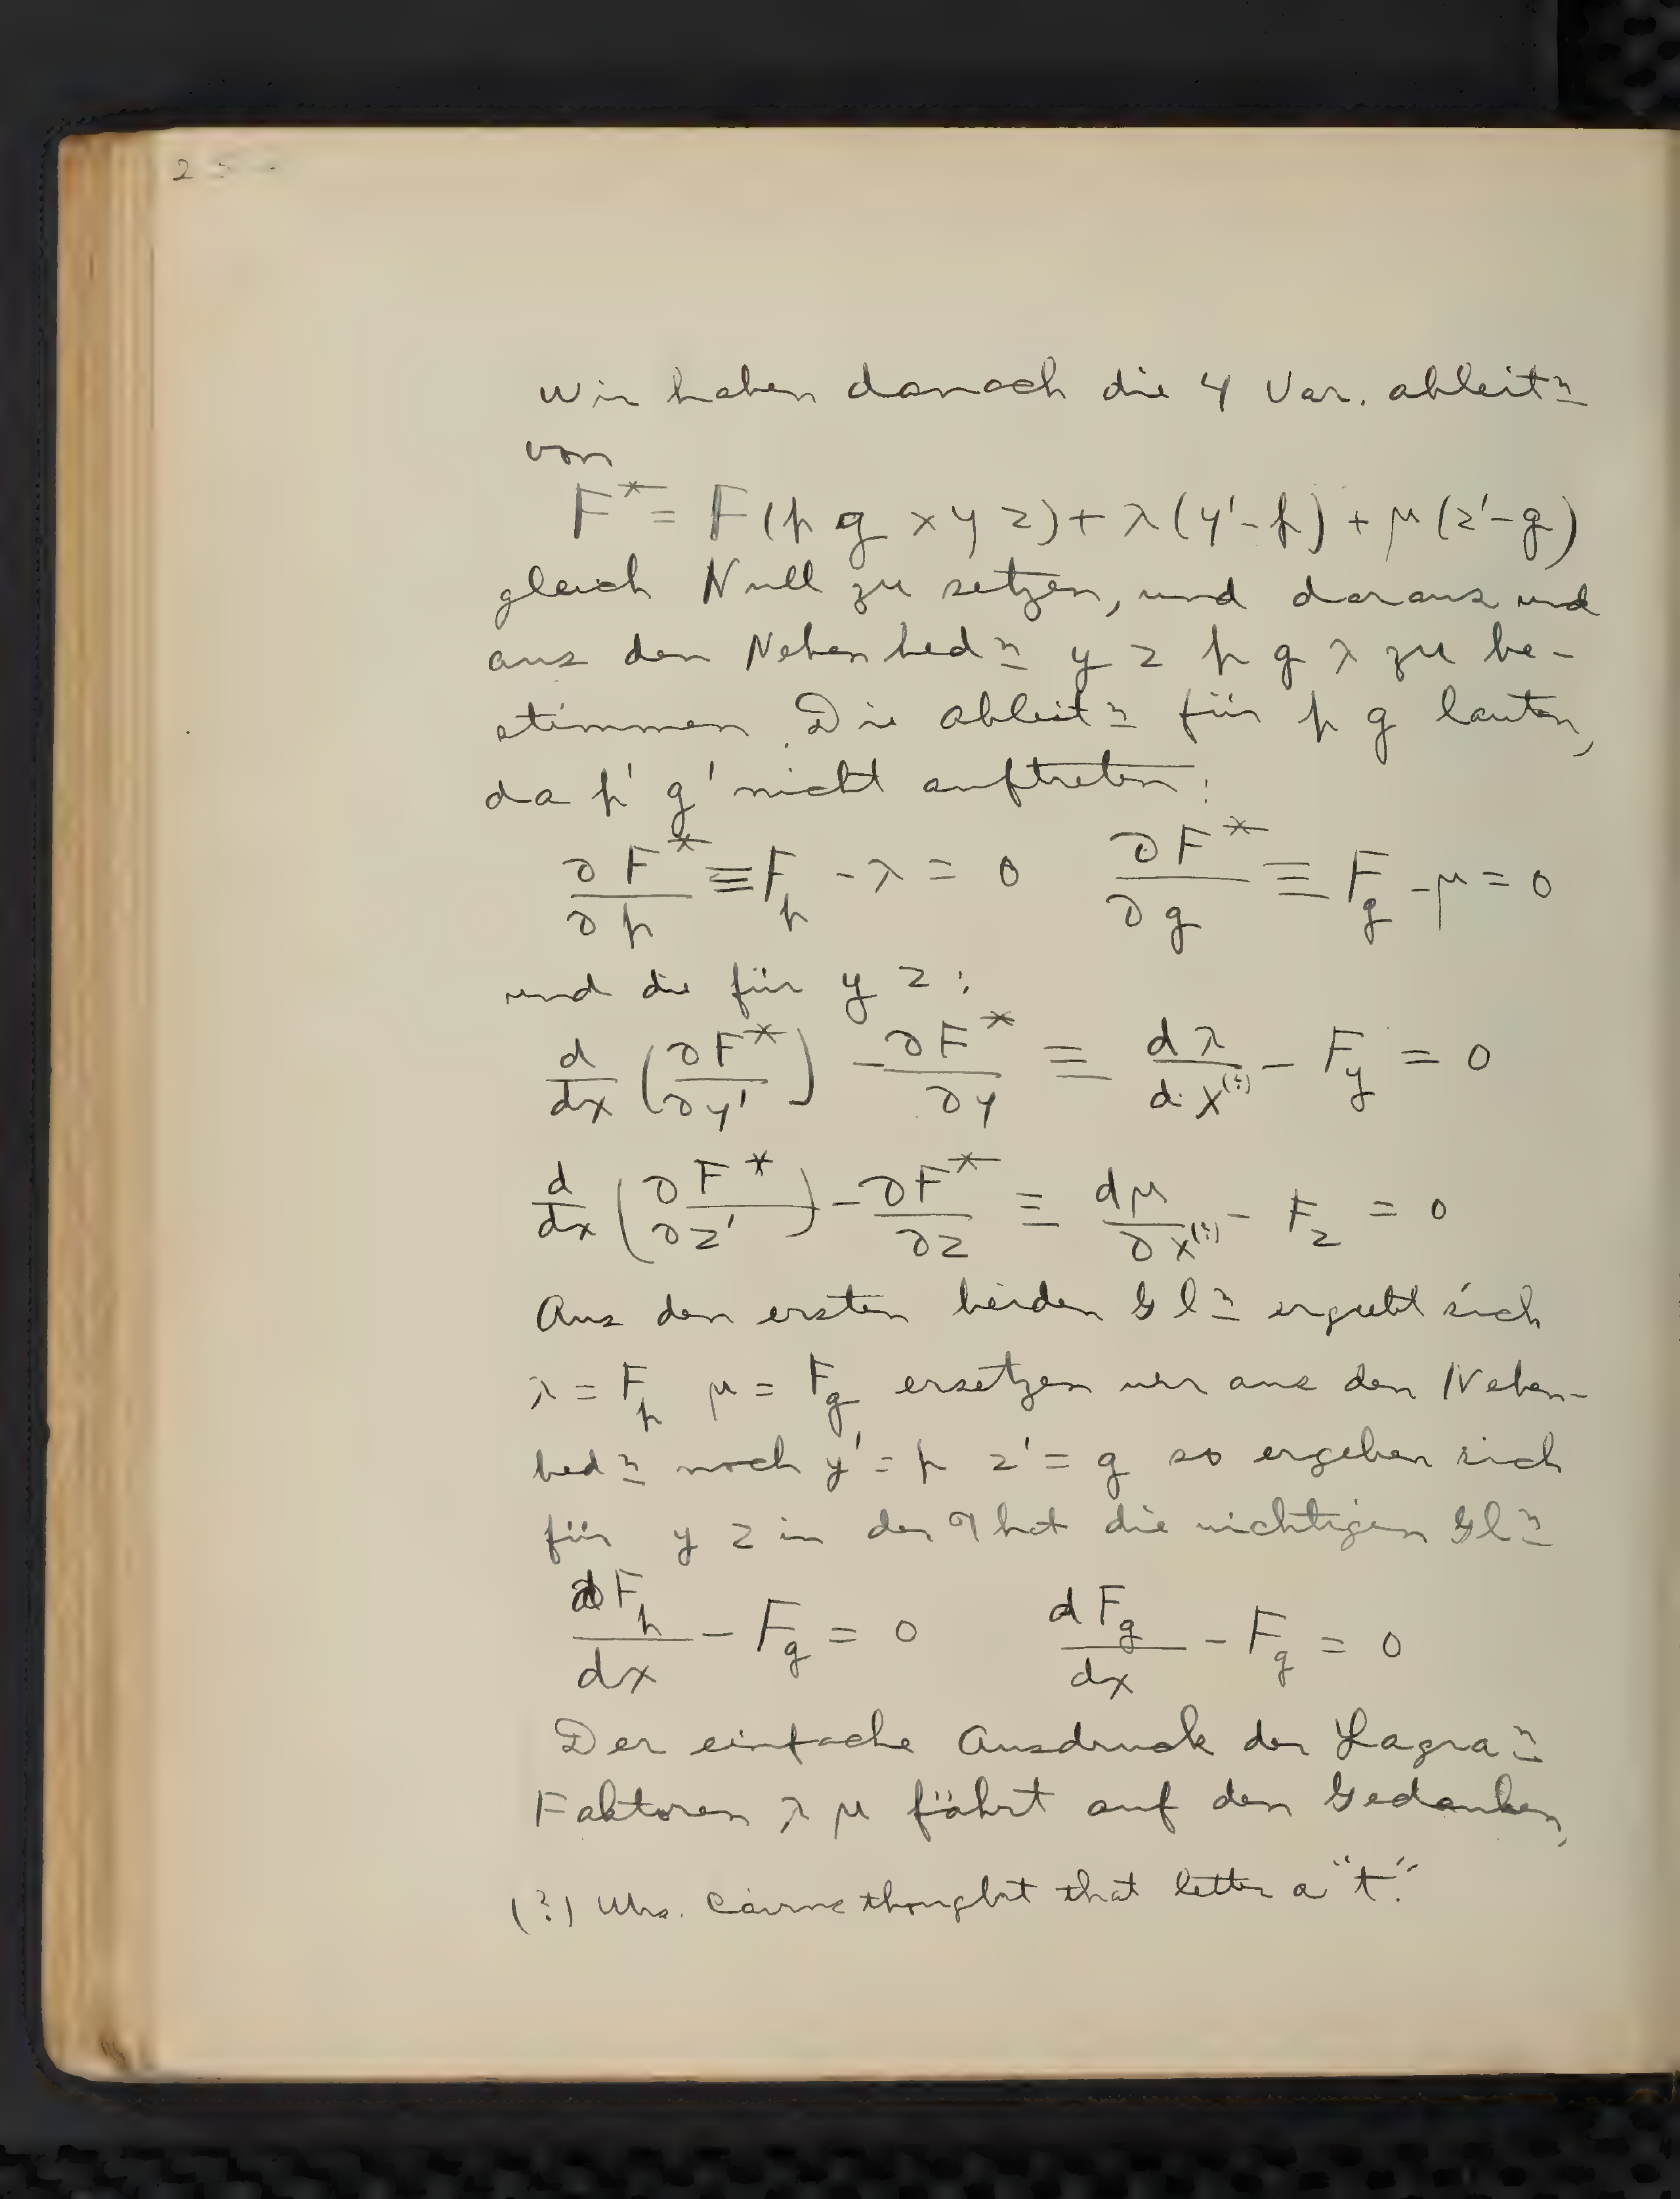 2
Wir haben danach die 4 Var. ableitn
von
F* = F(p q x y z) + λ(y' - p) + μ(z' - q)
gleich Null zu setzen, und daraus und
aus den Nebenbedn y z p q λ zu be-
stimmen. Die Ableitn für p q lauten,
da p' q' nicht auftreten:
∂F*/∂p ≡ F_p - λ = 0   ∂F*/∂q ≡ F_q - μ = 0
und die für y z:
d/dx (∂F*/∂y') - ∂F*/∂y ≡ dλ/dx(?) - F_y = 0
d/dx (∂F*/∂z') - ∂F*/∂z ≡ dμ/∂x(?) - F_z = 0
Aus den ersten beiden Gln ergiebt sich
λ = F_p μ = F_q ersetzen wir aus den Neben-
bedn noch y' = p z' = q so ergeben sich
für y z in der That die richtigen Gln
dF_p/dx - F_q = 0   dF_q/dx - F_q = 0
Der einfache Ausdruck der Lagran
Faktoren λ μ führt auf den Gedanken,
(?) Mrs. thought that letter a "t".